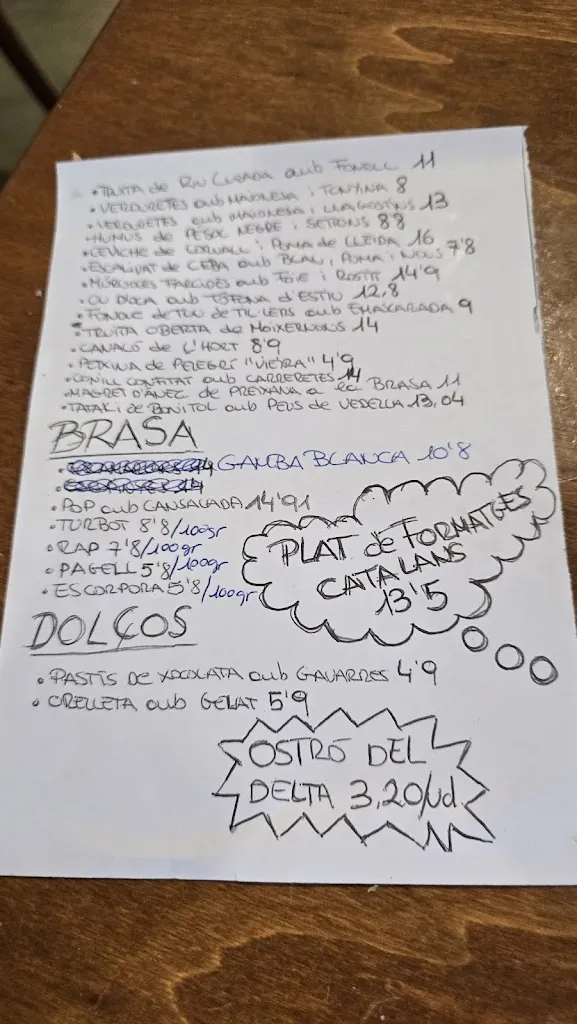 • TRUITA de RIU CURADA amb FONOLL 11
• VERDURETES amb MAIONESA i TONYINA 8
• VERDURETES amb MAIONESA i LLAGOSTINS 13
• HUMUS de PÈSOL NEGRE i SETRONS 8'8
• CEVICHE de CORVALL i POMA de LLEIDA 16
• ESCALIVAT de CEBA amb BLAU, POMA i NOUS 7'8
• MÚRGOLES FARCIDES amb FOIE i ROSTIT 14'9
• OU D'OCA amb TÒFONA D'ESTIU 12,8
• FONDUE de TOU de TIL·LERS amb EMASCARADA 9
• TRUITA OBERTA de MOIXERNONS 14
• CANALÓ de L'HORT 8'9
• PETXINA de PELEGRÍ "VIEYRA" 4'9
• CONILL CONFITAT amb CARRERETES 14
• MAGRET D'ÀNEC de PREIXANA a la BRASA 11
• TATAKI de BONÍTOL amb PEUS de VEDELLA 13,04
BRASA
• GAMBA BLANCA 10'8
• POP amb CANSALADA 14'91
• TURBOT 8'8/100gr
• RAP 7'8/100gr
• PAGELL 5'8/100gr
• ESCORPORA 5'8/100gr
PLAT de FORMATGES
CATALANS
13'5
DOLÇOS
• PASTÍS DE XOCOLATA amb GAVARRES 4'9
• ORELLETA amb GELAT 5'9
OSTRÓ DEL
DELTA 3,20/ud.